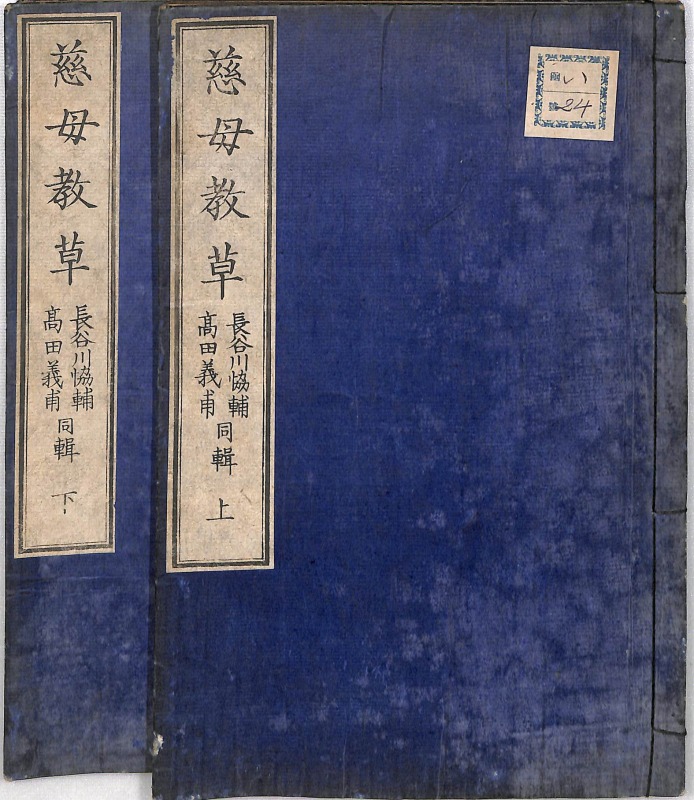 慈母教草
長谷川恊輔
髙田義甫
同輯
上
い
24
慈母教草
長谷川恊輔
髙田義甫
同輯
下